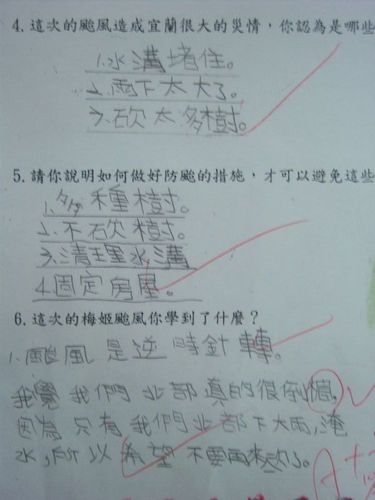 4.這次的颱風造成宜蘭很大的災情，你認為是哪些
1.水溝堵住。
2.雨下太大了。
3.砍太多樹。
5.請你說明如何做好防颱的措施，才可以避免這些
1.多種樹。
2.不砍樹。
3.清理水溝
4.固定房屋。
6.這次的梅姬颱風你學到了什麼？
1.颱風是逆時針轉。
我覺我們北部真的很倒楣，
因為只有我們北部下大雨，淹
水，所以希望不要再來了。
A++